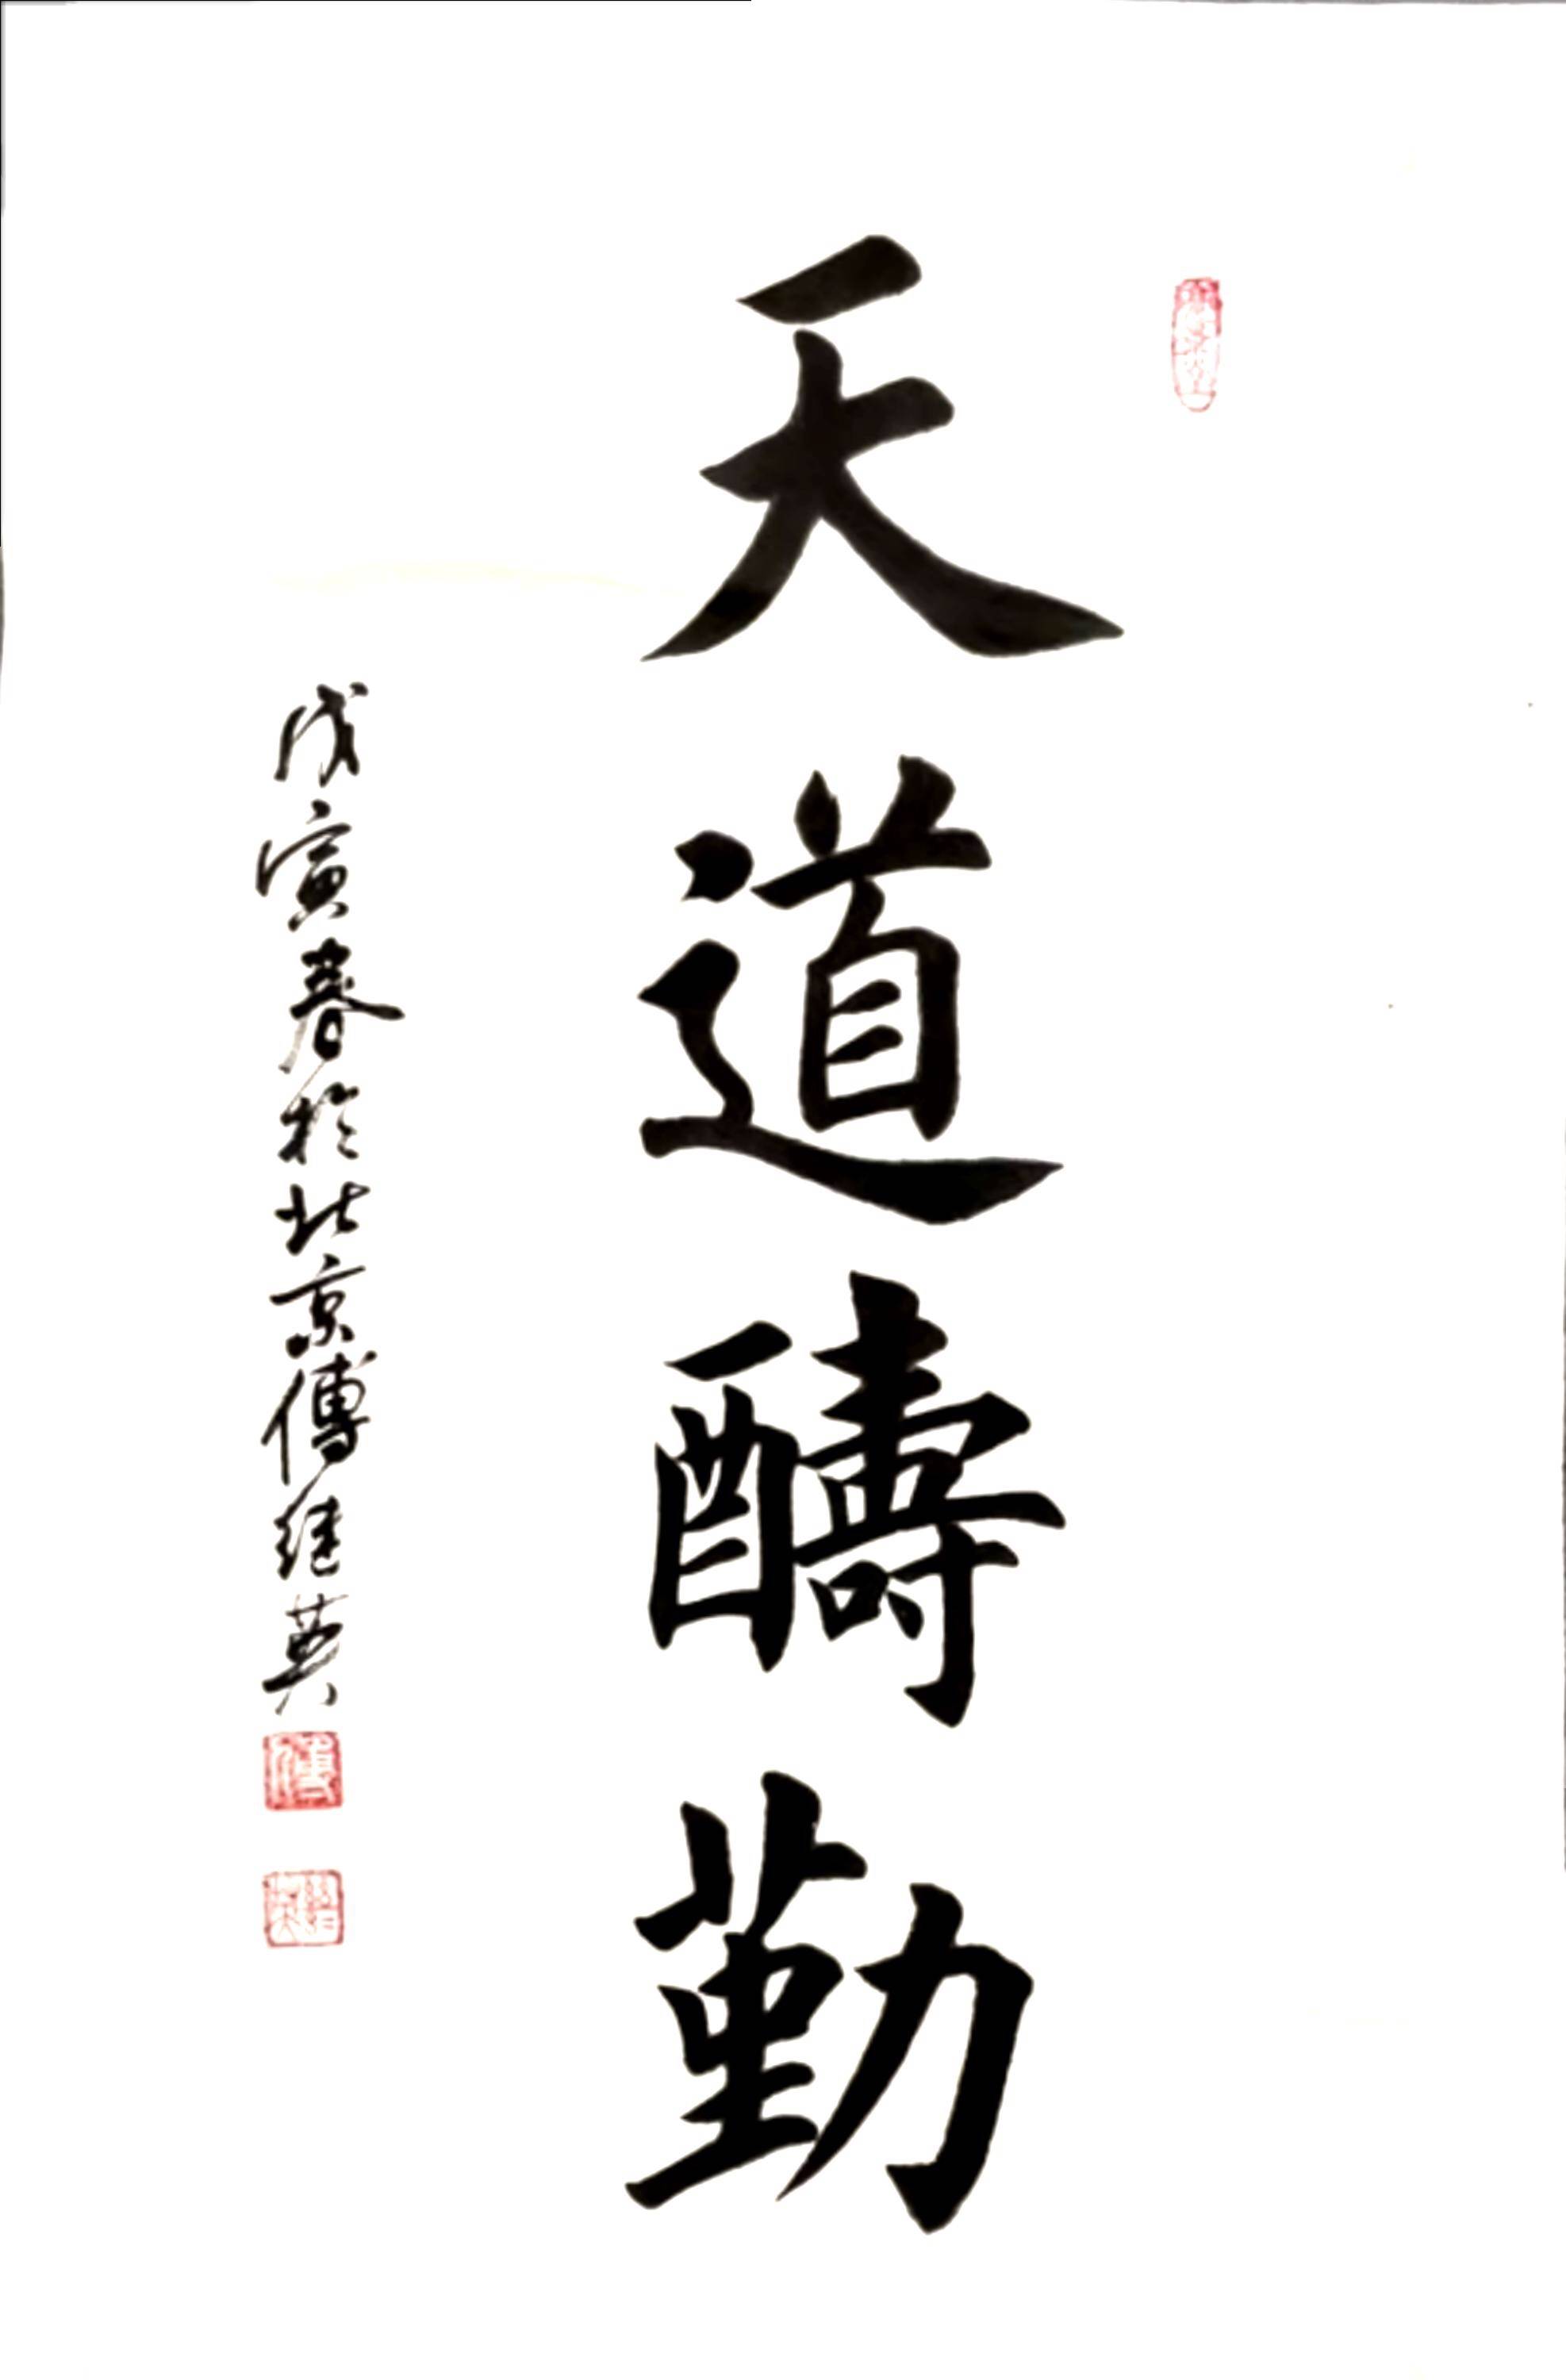 天道醻勤
戊寅春於北京傅继英
傅